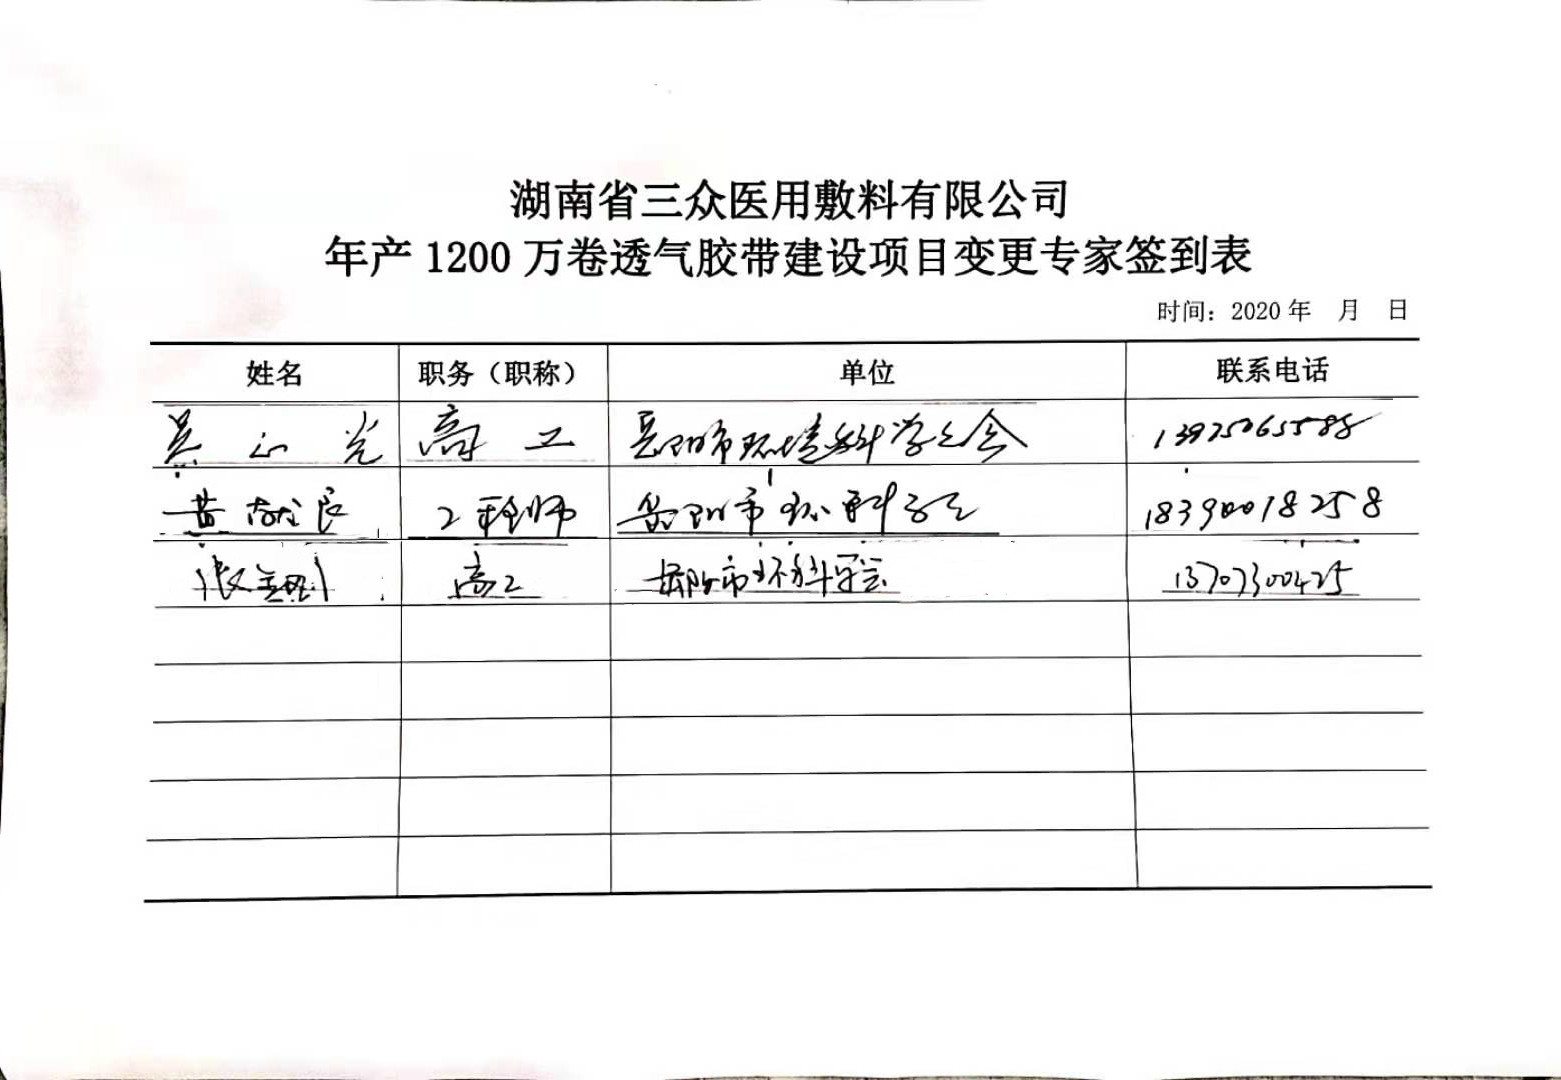 湖南省三众医用敷料有限公司
年产 1200 万卷透气胶带建设项目变更专家签到表
时间：2020 年 月 日
姓名 职务（职称） 单位 联系电话
吴 光 高 工 岳阳市环境科学学会 13975065588
黄 良 工程师 岳阳市环科学会 18390018258
张 刚 高工 岳阳市环科学会 13707300425